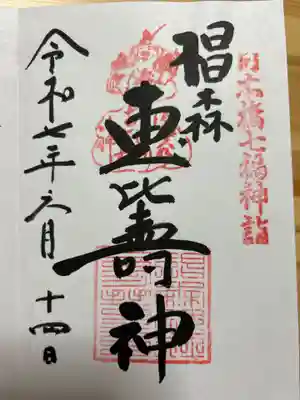 日本橋七福神詣
椙森
恵比壽神
令和七年六月十四日